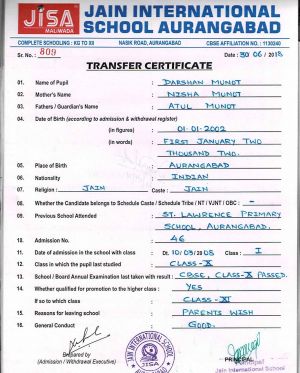 JISA
MALIWADA
JAIN INTERNATIONAL
SCHOOL AURANGABAD
COMPLETE SCHOOLING : KG TO XII NASIK ROAD, AURANGABAD CBSE AFFILIATION NO. : 1130240
Sr. No. : 809 Date : 30/06/2018
TRANSFER CERTIFICATE
01. Name of Pupil : DARSHAN MUNOT
02. Mother's Name : NISHA MUNOT
03. Fathers / Guardian's Name : ATUL MUNOT
04. Date of Birth (according to admission & withdrawal register)
(in figures) : 01-01-2002
(in words) : FIRST JANUARY TWO
THOUSAND TWO.
05. Place of Birth : AURANGABAD
06. Nationality : INDIAN
07. Religion : JAIN Caste : JAIN
08. Whether the Candidate belongs to Schedule Caste / Schedule Tribe / NT / VJNT / OBC : -
09. Previous School Attended : ST. LAWRENCE PRIMARY
SCHOOL, AURANGABAD.
10. Admission No. : 46
11. Date of admission in the school with class : Dt. 10/03/2008 Class : I
12. Class in which the pupil last studied : CLASS-X
13. School / Board Annual Examination last taken with result : CBSE, CLASS-X PASSED.
14. Whether qualified for promotion to the higher class : YES
If so to which class : CLASS-XI
15. Reasons for leaving school : PARENTS WISH
16. General Conduct : GOOD.
Prepared by
(Admission / Withdrawal Executive)
JAIN INTERNATIONAL SCHOOL
JISA
PRINCIPAL
Principal
Jain International School